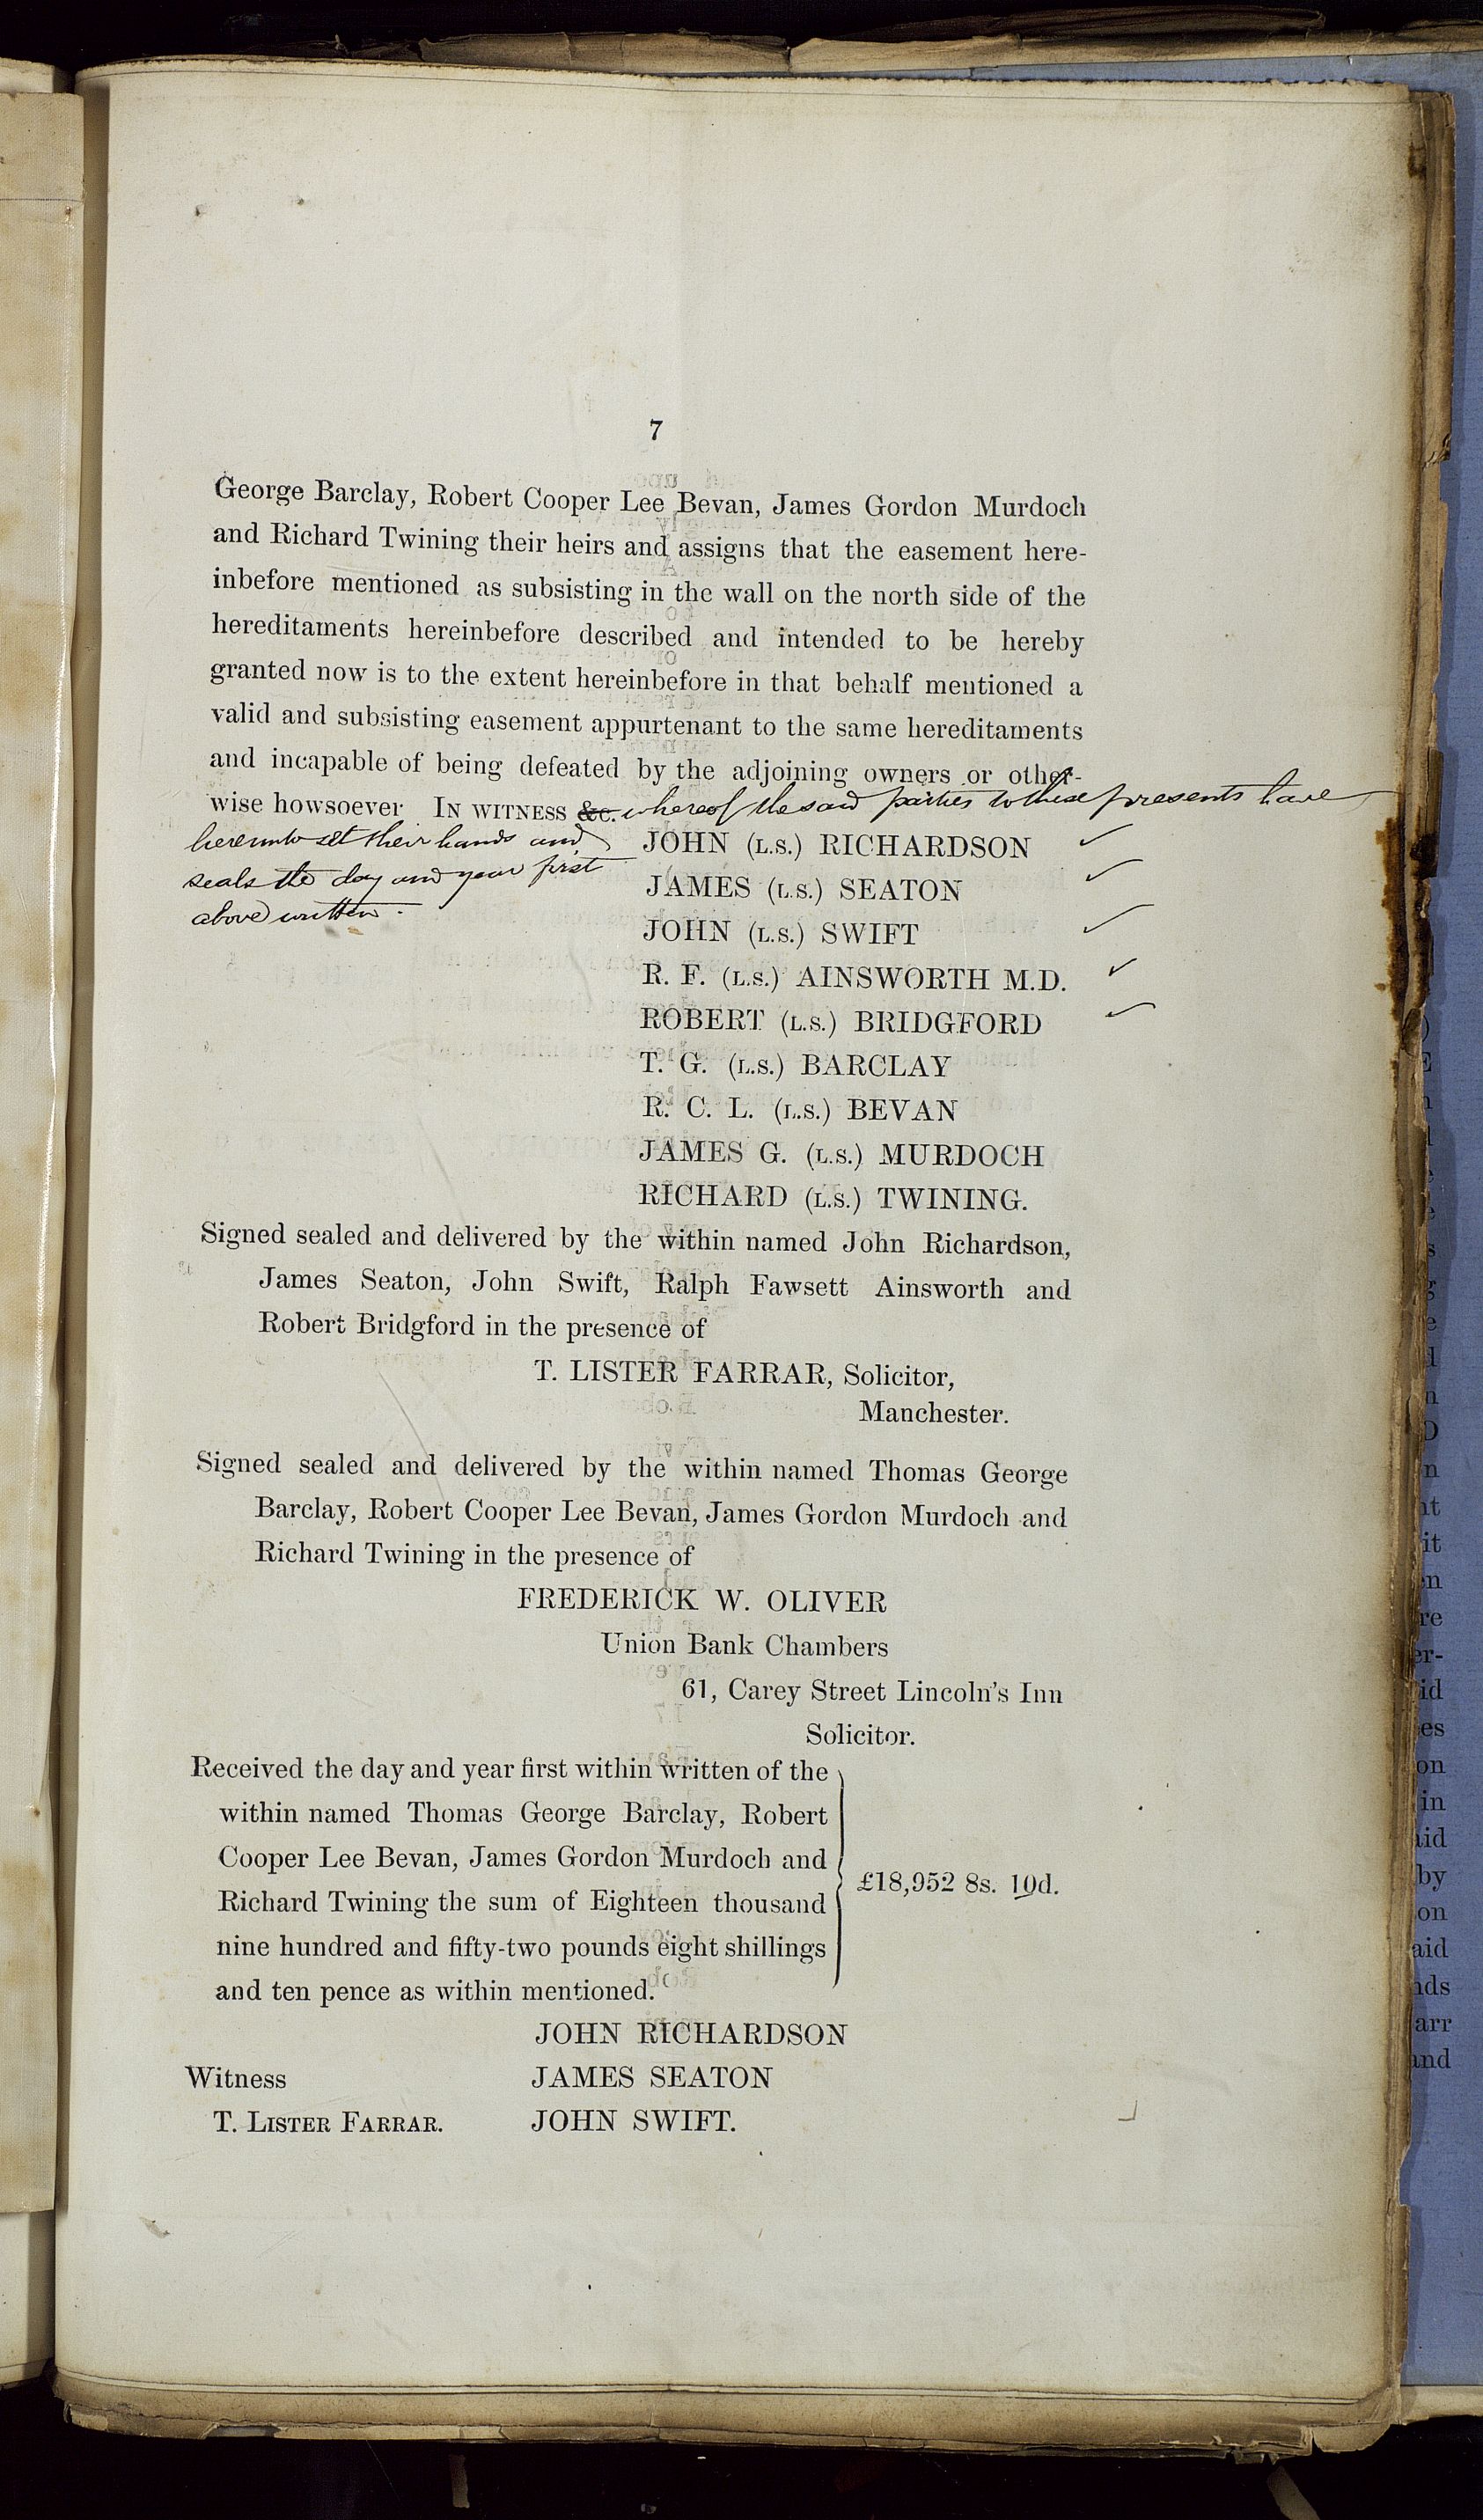 7
George Barclay, Robert Cooper Lee Bevan, James Gordon Murdoch
and Richard Twining their heirs and assigns that the easement here-
inbefore mentioned as subsisting in the wall on the north side of the
hereditaments hereinbefore described and intended to be hereby
granted now is to the extent hereinbefore in that behalf mentioned a
valid and subsisting easement appurtenant to the same hereditaments
and incapable of being defeated by the adjoining owners or other-
wise howsoever IN WITNESS &c. whereof the said parties to these presents have
hereunto set their hands and
seals the day and year first
above written.
JOHN (L.S.) RICHARDSON
JAMES (L.S.) SEATON
JOHN (L.S.) SWIFT
R. F. (L.S.) AINSWORTH M.D.
ROBERT (L.S.) BRIDGFORD
T. G. (L.S.) BARCLAY
R. C. L. (L.S.) BEVAN
JAMES G. (L.S.) MURDOCH
RICHARD (L.S.) TWINING.
Signed sealed and delivered by the within named John Richardson,
James Seaton, John Swift, Ralph Fawsett Ainsworth and
Robert Bridgford in the presence of
T. LISTER FARRAR, Solicitor,
Manchester.
Signed sealed and delivered by the within named Thomas George
Barclay, Robert Cooper Lee Bevan, James Gordon Murdoch and
Richard Twining in the presence of
FREDERICK W. OLIVER
Union Bank Chambers
61, Carey Street Lincoln's Inn
Solicitor.
Received the day and year first within written of the
within named Thomas George Barclay, Robert
Cooper Lee Bevan, James Gordon Murdoch and
Richard Twining the sum of Eighteen thousand
nine hundred and fifty-two pounds eight shillings
and ten pence as within mentioned.
£18,952 8s. 10d.
JOHN RICHARDSON
Witness JAMES SEATON
T. LISTER FARRAR. JOHN SWIFT.